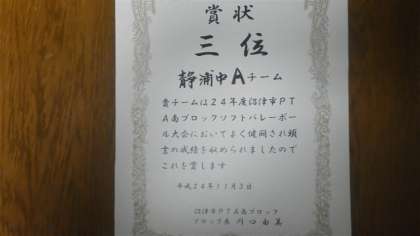 賞状
三位
静浦中Aチーム
貴チームは24年度沼津市PT
A南ブロックソフトバレーボー
ル大会においてよく健闘され頭
書の成績を収められましたので
これを賞します
平成24年11月3日
沼津市PTA南ブロック
ブロック長